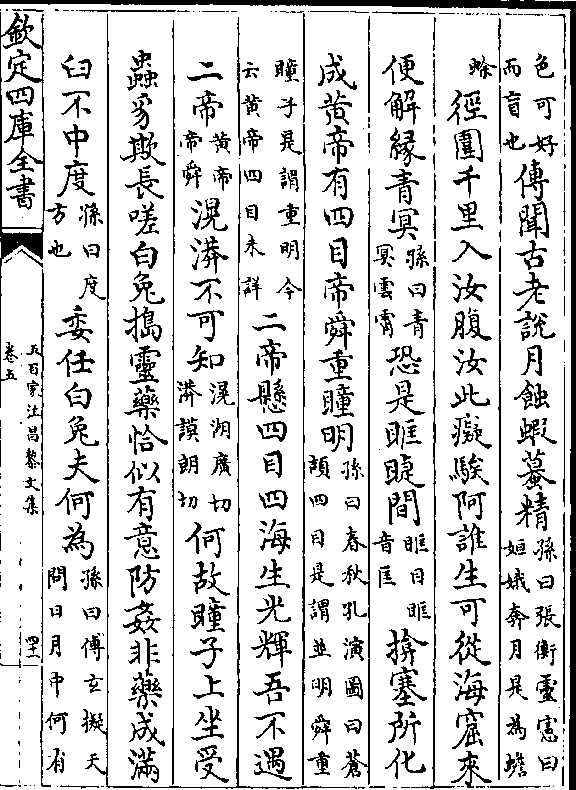 色可好
而盲也
傳聞古老說月蝕蝦蟇精
孫曰張衡靈憲曰
姮娥奔月是為蟾
蜍
徑圓千里入汝腹汝此癡騃阿誰生可從海窟來
便解緣青冥
孫曰青
冥雲霄
恐是眶睫間
眶曰眶
音匡
揜塞所化
成黃帝有四目帝舜重瞳明
孫曰春秋孔演圖曰蒼
頡四目是謂並明舜重
瞳子是謂重明今
云黃帝四目未詳
二帝懸四目四海生光輝吾不遇
二帝
黃帝
帝舜
滉漭不可知
滉湖廣切
漭謨朗切
何故瞳子上坐受
蟲豸欺長嗟白兔搗靈藥恰似有意防姦非藥成滿
臼不中度
孫曰度
方也
委任白兔夫何為
孫曰傅玄擬天
問曰月中何有
欽定四庫全書
五百家注昌黎文集
卷五
四十一